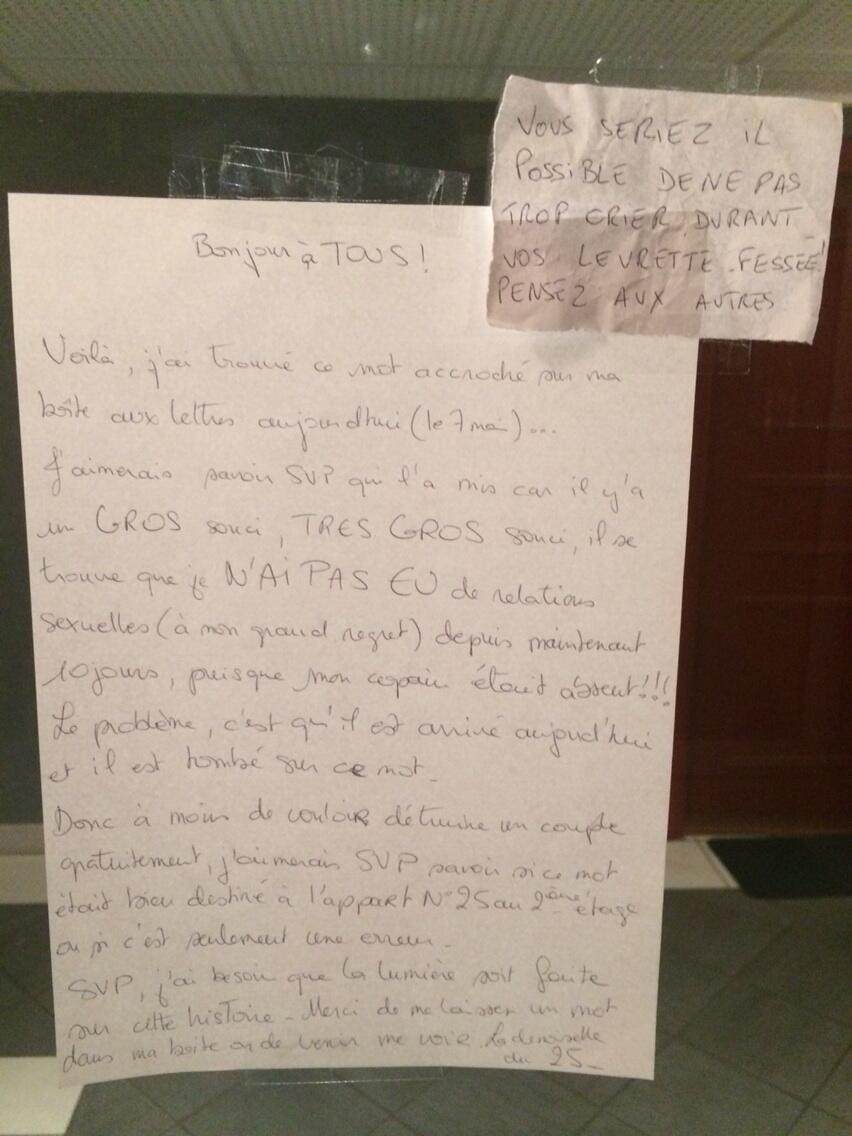 VOUS SERIEZ iL
POSSiBLE DE NE PAS
TROP CRIER DURANT
VOS LEVRETTE FESSEÉ!
PENSEZ AUX AUTRES
Bonjour à TOUS !
Voilà, j'ai trouvé ce mot accroché sur ma
boîte aux lettres aujourd'hui (le 7 mai)...
J'aimerais savoir SVP qui l'a mis car il y'a
un GROS souci, TRES GROS souci, il se
trouve que je N'Ai PAS EU de relations
sexuelles (à mon grand regret) depuis maintenant
10 jours, puisque mon copain était absent!!!
Le problème, c'est qu'il est arrivé aujourd'hui
et il est tombé sur ce mot.
Donc à moins de vouloir détruire un couple
gratuitement, j'aimerais SVP savoir si ce mot
était bien destiné à l'appart N°25 au 2ième étage
ou si c'est seulement une erreur.
SVP, j'ai besoin que la lumière soit faite
sur cette histoire - Merci de me laisser un mot
dans ma boîte ou de venir me voir La demoiselle
du 25_